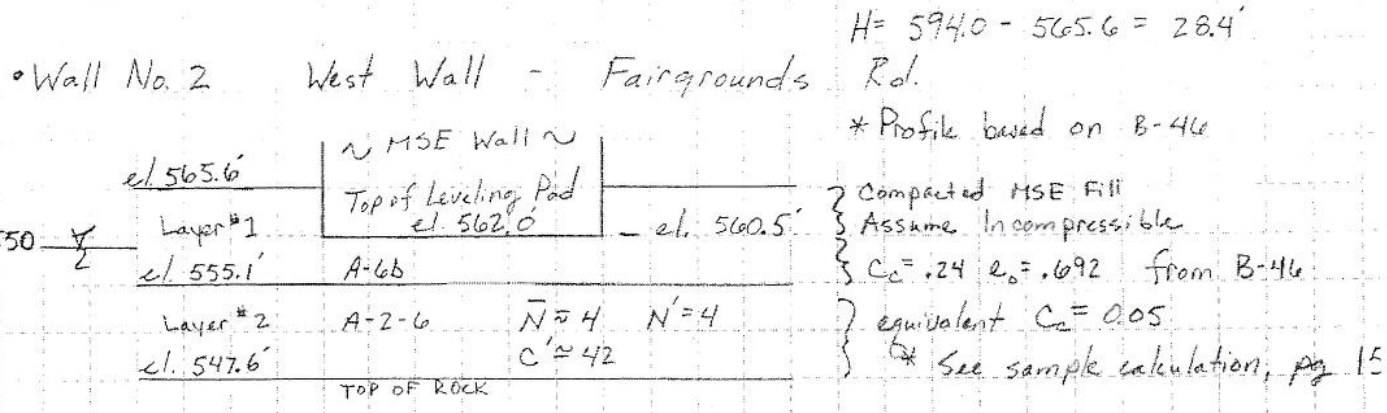 H= 594.0 - 565.6 = 28.4'
• Wall No. 2 West Wall - Fairgrounds Rd.
* Profile based on B-46
~ MSE Wall ~
el. 565.6'
Top of Leveling Pad
el. 562.0'
el. 560.5'
Compacted MSE Fill
Assume Incompressible
50
Layer #1
el. 555.1'
A-6b
Cc= .24 e₀= .692 from B-46
Layer #2 A-2-6 N̄ ≈ 4 N' = 4
C' ≈ 42
equivalent Cc= 0.05
* See sample calculation, pg 15
el. 547.6'
TOP OF ROCK